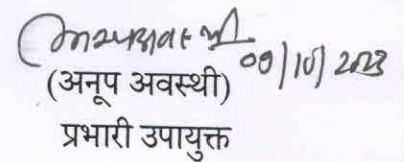 09/10/2023
(अनूप अवस्थी)
प्रभारी उपायुक्त